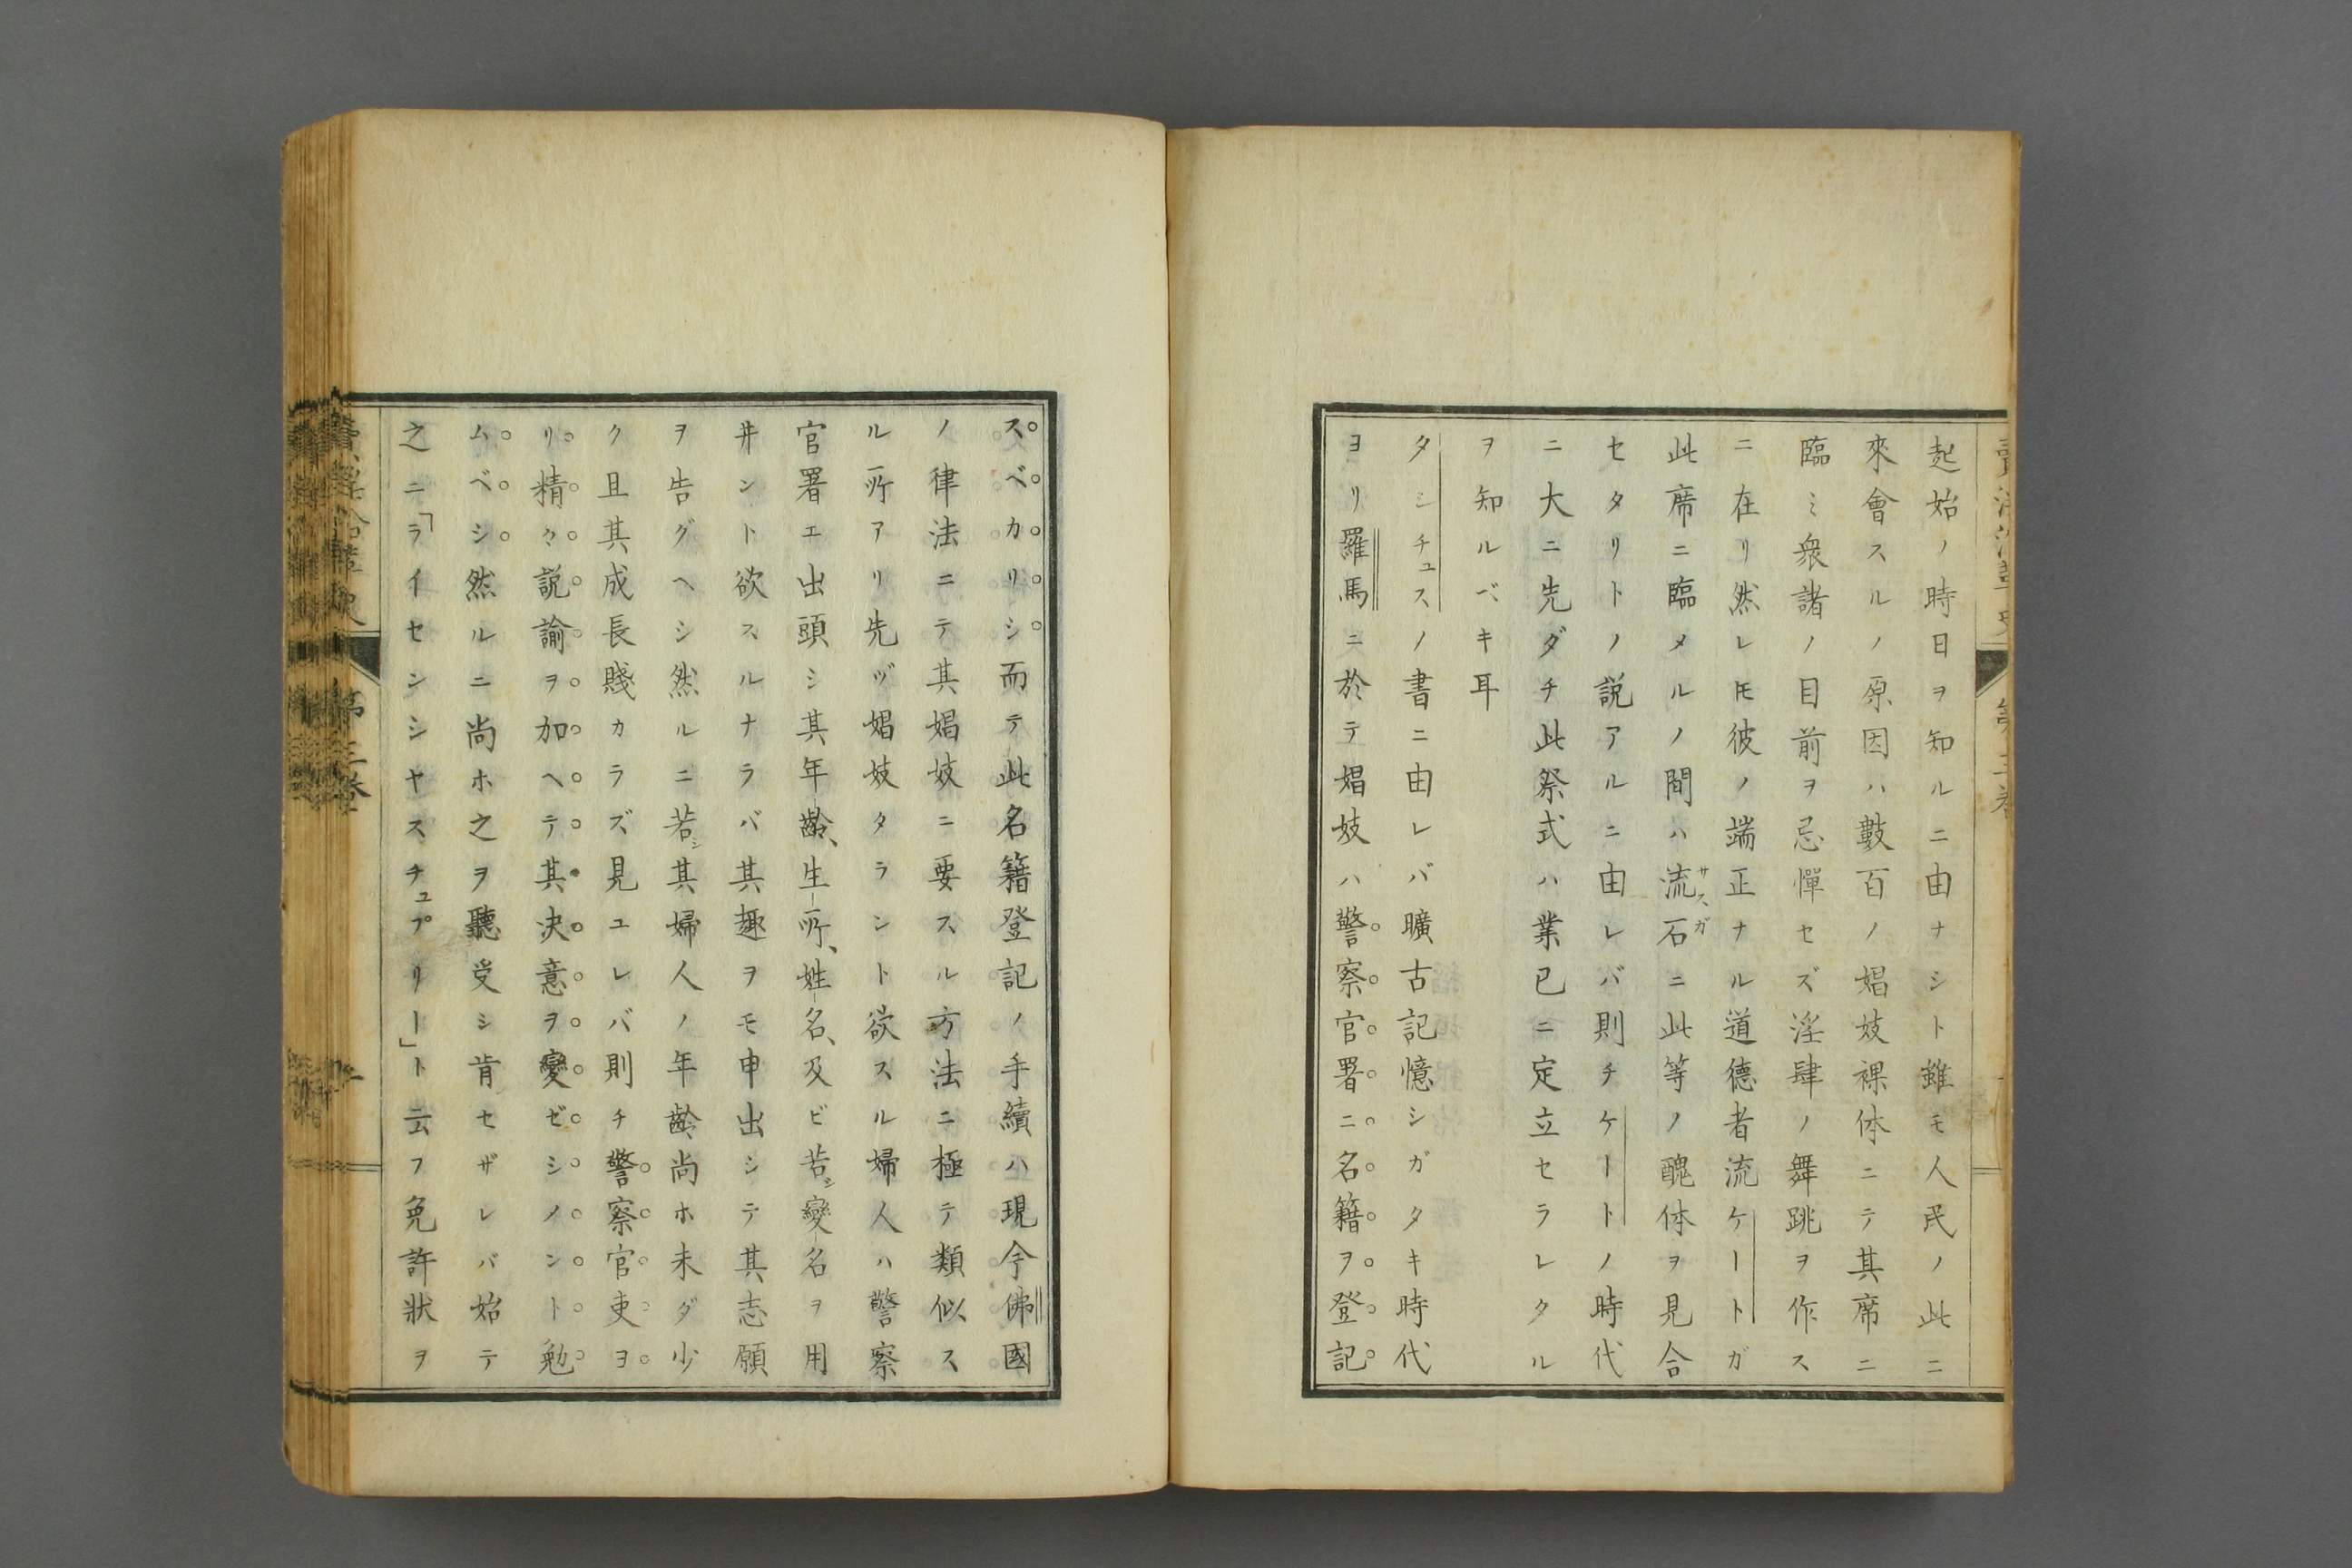 起始ノ時日ヲ知ルニ由ナシト雖モ人民ノ此ニ
來會スルノ原因ハ數百ノ娼妓裸体ニテ其席ニ
臨ミ衆諸ノ目前ヲ忌憚セズ淫肆ノ舞跳ヲ作ス
ニ在リ然レ𪜈彼ノ端正ナル道德者流ケートガ
此席ニ臨メルノ間ハ流石ニ此等ノ醜体ヲ見合
セタリトノ説アルニ由レバ則チケートノ時代
ニ大ニ先ダチ此祭式ハ業已ニ定立セラレタル
ヲ知ルベキ耳
タシチュスノ書ニ由レバ曠古記憶シガタキ時代
ヨリ羅馬ニ於テ娼妓ハ警察官署ニ名籍ヲ登記
スベカリシ而テ此名籍登記ノ手續ハ現今佛國
ノ律法ニテ其娼妓ニ要スル方法ニ極テ類似ス
ル所アリ先ヅ娼妓タラント欲スル婦人ハ警察
官署エ出頭シ其年齡、生所、姓名、及ビ若シ變名ヲ用
井ント欲スルナラバ其趣ヲモ申出シテ其志願
ヲ告グヘシ然ルニ若シ其婦人ノ年齡尚ホ未ダ少
ク且其成長賤カラズ見ユレバ則チ警察官吏ヨ
リ精々説諭ヲ加ヘテ其决意ヲ變ゼシメント勉
ムベシ然ルニ尚ホ之ヲ聽受シ肯セザレバ始テ
之ニ「ライセンシヤスチュプリー」ト云フ免許狀ヲ